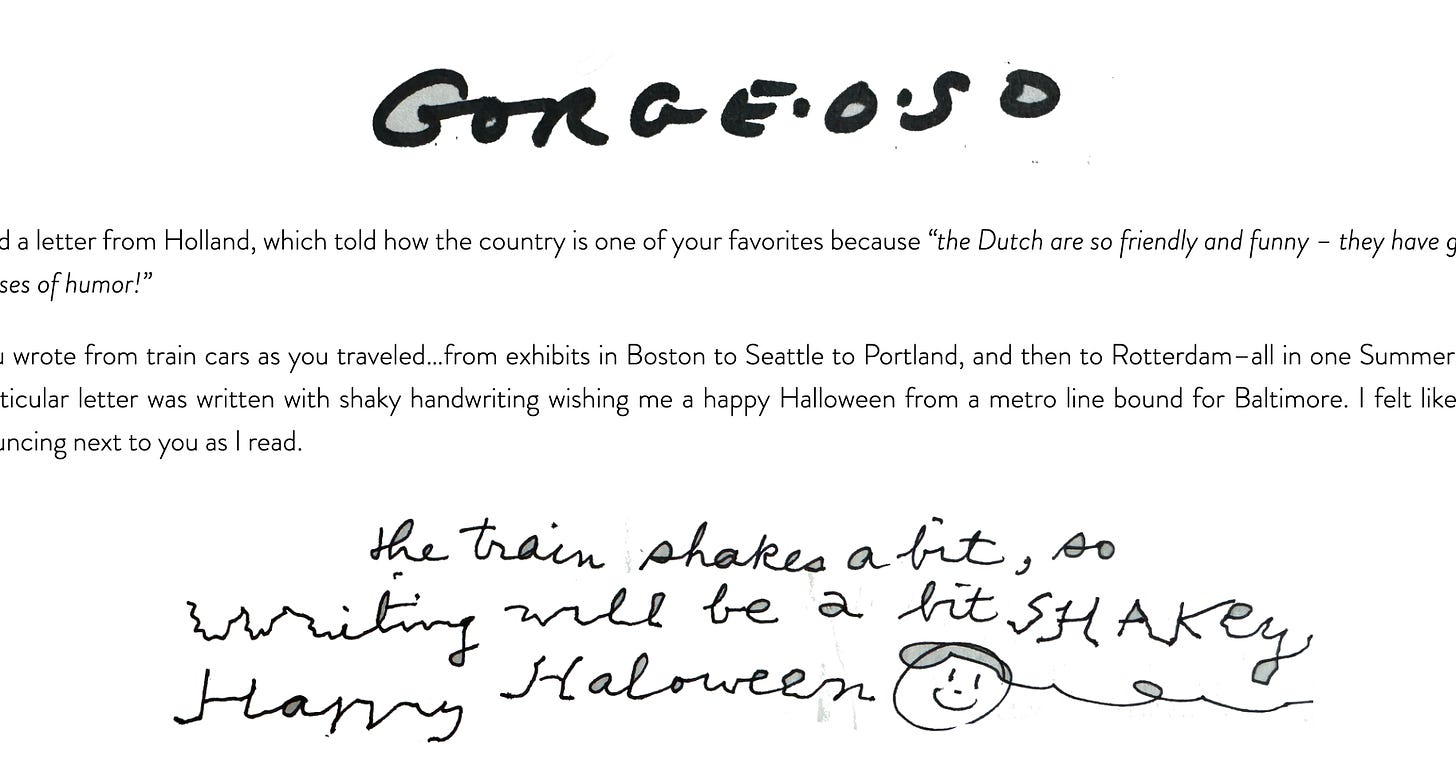 GORGE·O·SO
d a letter from Holland, which told how the country is one of your favorites because “the Dutch are so friendly and funny – they have g
ses of humor!”
u wrote from train cars as you traveled...from exhibits in Boston to Seattle to Portland, and then to Rotterdam–all in one Summer
ticular letter was written with shaky handwriting wishing me a happy Halloween from a metro line bound for Baltimore. I felt like
uncing next to you as I read.
the train shakes a bit, so
writing will be a bit SHAKEy
Happy Haloween